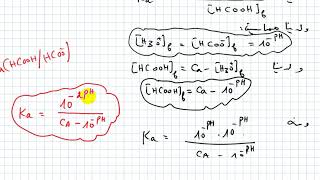 [HCOOH]f
ولدينا
[H₃O⁺]f = [HCOO⁻]f = 10^-PH
ولدينا [HCOOH]f = CA - [H₃O⁺]f
[HCOOH]f = CA - 10^-PH
ومنه Ka = 10^-PH . 10^-PH / CA - 10^-PH
(HCOOH/HCOO⁻)
Ka = 10^-2PH / CA - 10^-PH